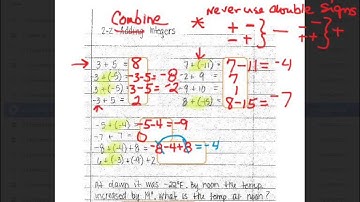 Combine
never use double signs
2-2 Adding Integers
* + - } - - - } +
- + } + + }
→ 3 + 5 = 8
-3 + (-5) = -3-5=-8
3 + (-5) = 3-5=-2
-3 + 5 = 2
7 + (-11) = 7-11=-4
-2 + 9 = 7
-9 + 10 = 1
8 + (-15) = 8-15=-7
-5 + (-4) = -5-4=-9
-7 + 7 = 0
-8 + (-4) + 8 = -8-4+8=-4
6 + (-3) + (-9) + 2
At dawn it was -22°F. By noon the temp.
increased by 19°. What is the temp at noon?